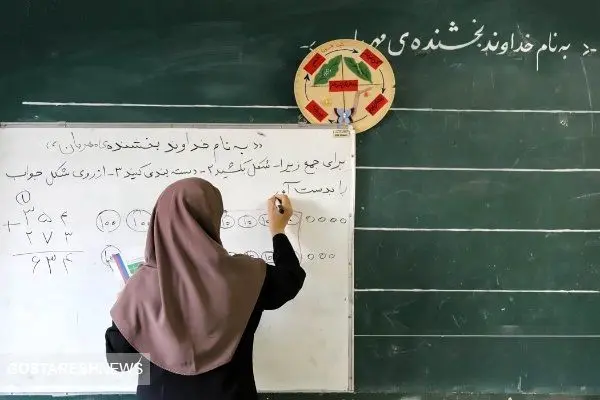 » به نام خداوند بخشنده‌ی
« به نام خداوند بخشنده‌ی مهربان »
برای جمع زیر ۱- شکل بکشید ۲- دسته بندی کنید ۳- از روی شکل جواب
را بدست
۱
۳۵۴
+ ۲۷۳
۱۰۰ ۱۰۰ ۱۰ ۱۰ ۱۰
GOSTARESH.NEWS